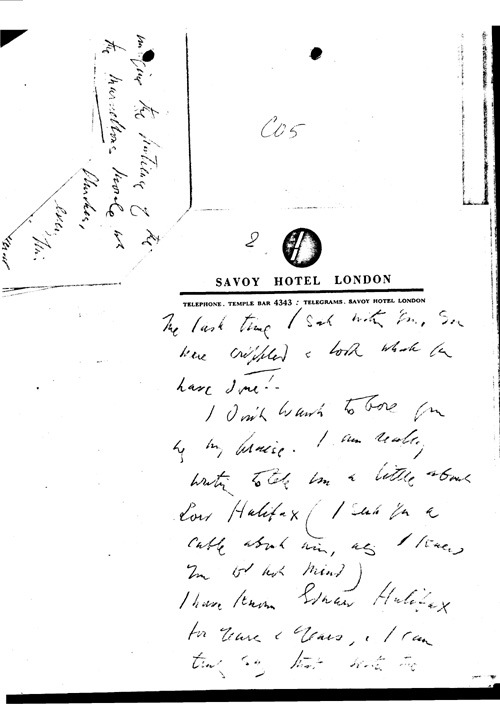 the
the marvellous people we
Flanders,
even this
C05
2
SAVOY HOTEL LONDON
TELEPHONE. TEMPLE BAR 4343 : TELEGRAMS. SAVOY HOTEL LONDON
The last time I sat with you, you
were crippled & look what you
have done!
I don't want to bore you
by my praise. I am really
writing to tell you a little about
Lord Halifax (I sent you a
cable about him, as I knew
you wd not mind)
I have known Edward Halifax
for years & years, & I can
truly say that